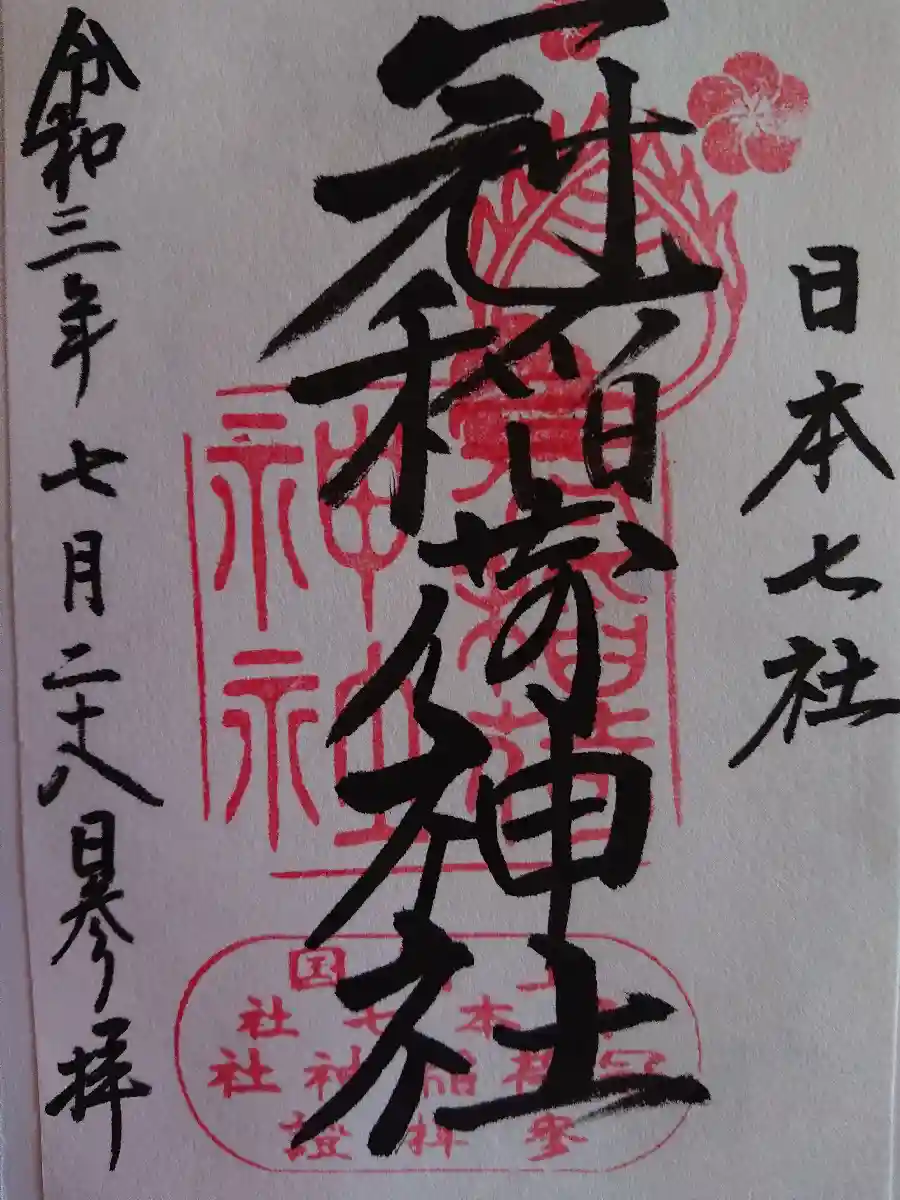 日本七社
冠稲荷神社
令和三年 七月二十八日参拝
神社
日本七社
冠稲荷神社
参拝證